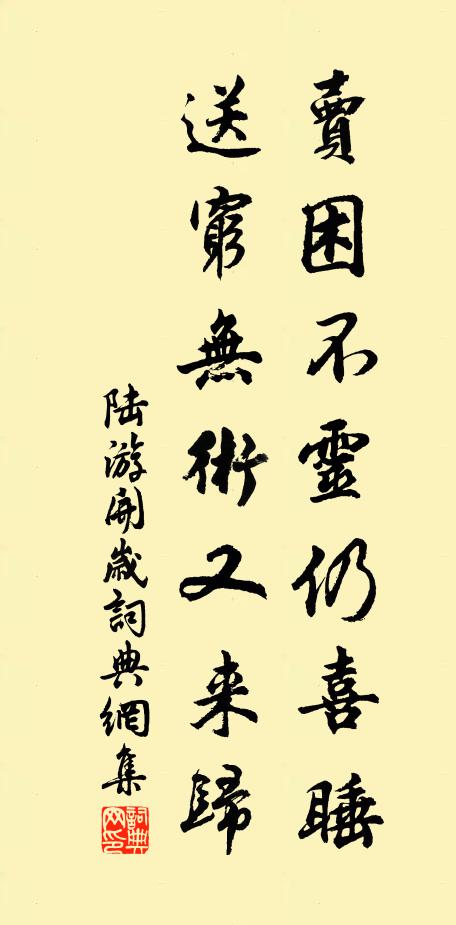 賣困不靈仍喜睡
送窮無術又来歸
陸游開歲詞典網集
詞典网印